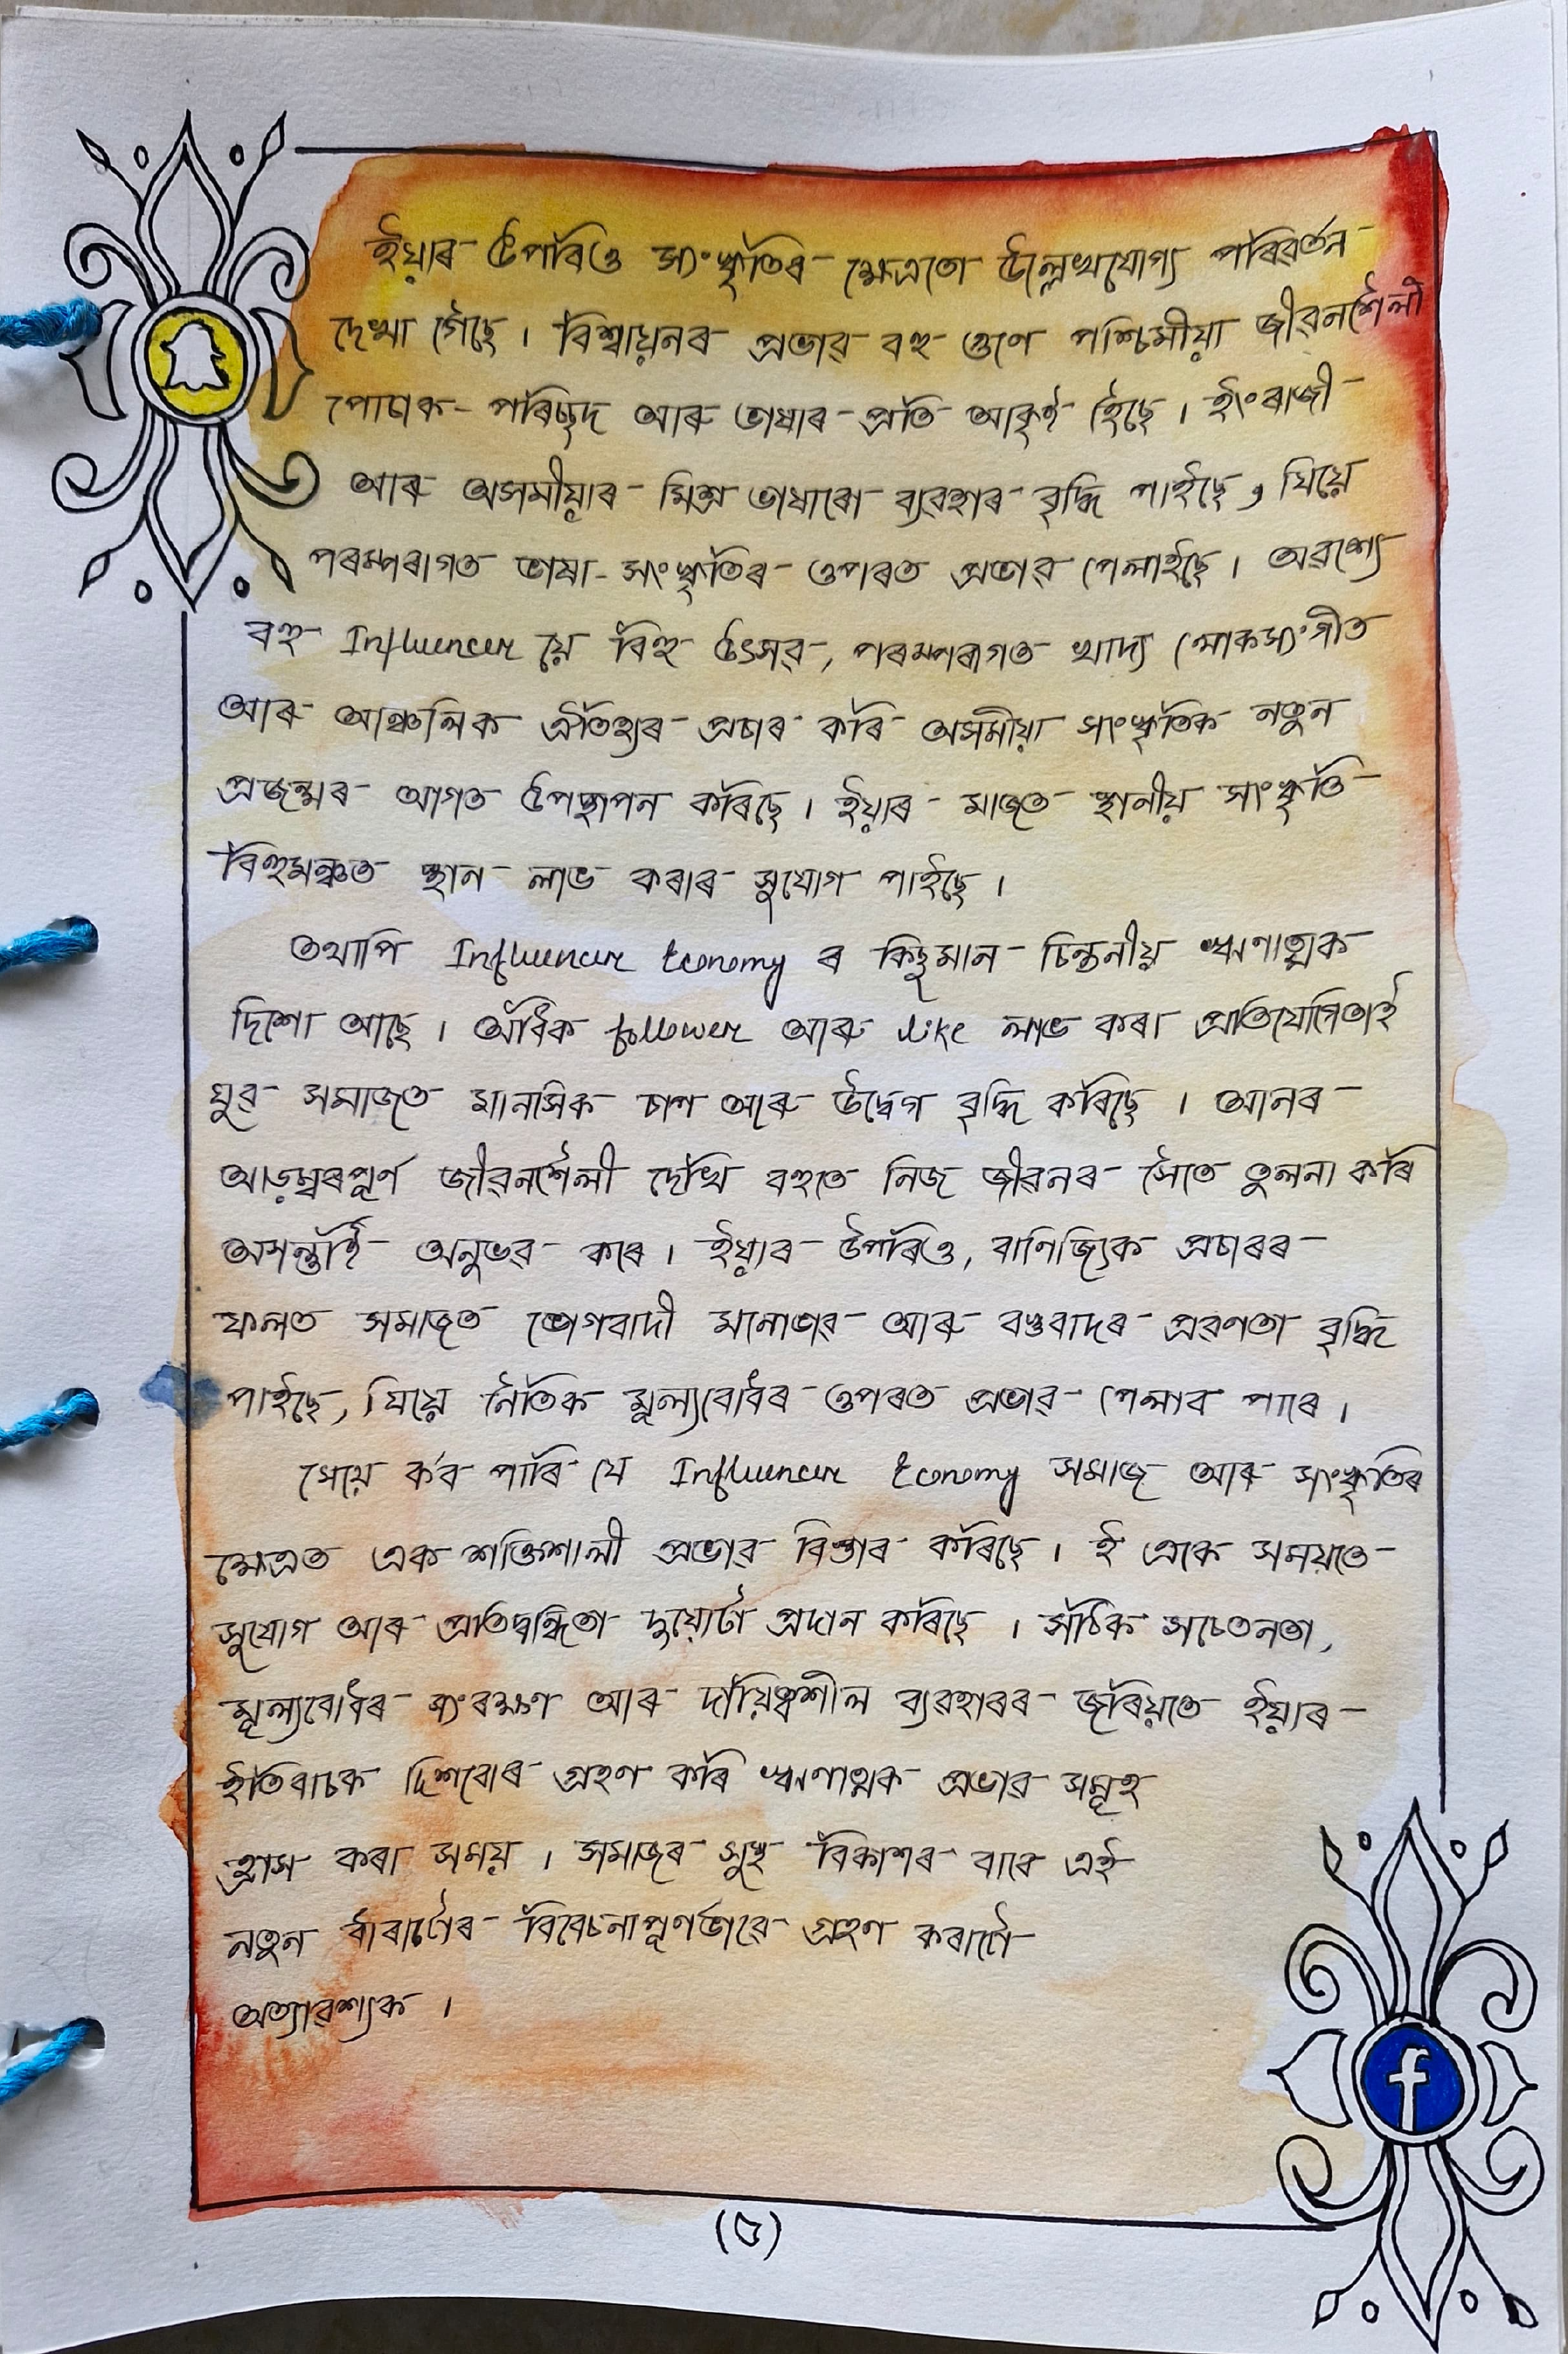 ইয়াৰ উপৰিও সংস্কৃতিৰ ক্ষেত্ৰতো উল্লেখযোগ্য পৰিৱৰ্তন
দেখা গৈছে। বিশ্বায়নৰ প্ৰভাৱ বহু গুণে পশ্চিমীয়া জীৱনশৈলী
পোচাক-পৰিচ্ছদ আৰু ভাষাৰ প্ৰতি আকৃষ্ট হৈছে। ইংৰাজী
আৰু অসমীয়াৰ মিশ্ৰ ভাষাৰো ব্যৱহাৰ বৃদ্ধি পাইছে, যিয়ে
পৰম্পৰাগত ভাষা-সংস্কৃতিৰ ওপৰত প্ৰভাৱ পেলাইছে। অৱশ্যে
বহু Influencer য়ে বিহু উৎসৱ, পৰম্পৰাগত খাদ্য লোকসংগীত
আৰু আঞ্চলিক ঐতিহ্যৰ প্ৰচাৰ কৰি অসমীয়া সাংস্কৃতিক নতুন
প্ৰজন্মৰ আগত উপস্থাপন কৰিছে। ইয়াৰ মাজত স্থানীয় সংস্কৃতি
বিহুমঞ্চত স্থান লাভ কৰাৰ সুযোগ পাইছে।
তথাপি Influencer Economy ৰ কিছুমান চিন্তনীয় ঋণাত্মক
দিশো আছে। অধিক follower আৰু like লাভ কৰা প্ৰতিযোগিতাই
যুৱ সমাজত মানসিক চাপ আৰু উদ্বেগ বৃদ্ধি কৰিছে। আনৰ
আড়ম্বৰপূৰ্ণ জীৱনশৈলী দেখি বহুতে নিজ জীৱনৰ সৈতে তুলনা কৰি
অসন্তুষ্টি অনুভৱ কৰে। ইয়াৰ উপৰিও, বাণিজ্যিক প্ৰচাৰৰ
ফলত সমাজত ভোগবাদী মনোভাৱ আৰু বস্তুবাদৰ প্ৰৱণতা বৃদ্ধি
পাইছে, যিয়ে নৈতিক মূল্যবোধৰ ওপৰত প্ৰভাৱ পেলাব পাৰে।
শেষে ক'ব পাৰি যে Influencer Economy সমাজ আৰু সংস্কৃতিৰ
ক্ষেত্ৰত এক শক্তিশালী প্ৰভাৱ বিস্তাৰ কৰিছে। ই একে সময়তে
সুযোগ আৰু প্ৰতিদ্বন্দ্বিতা দুয়োটা প্ৰদান কৰিছে। সঠিক সচেতনতা,
মূল্যবোধৰ সংৰক্ষণ আৰু দায়িত্বশীল ব্যৱহাৰৰ জৰিয়তে ইয়াৰ
ইতিবাচক দিশবোৰ গ্ৰহণ কৰি ঋণাত্মক প্ৰভাৱ সমূহ
হ্ৰাস কৰা সময়। সমাজৰ সুস্থ বিকাশৰ বাবে এই
নতুন ধাৰাটোৰ বিবেচনাপূৰ্ণভাৱে গ্ৰহণ কৰাটো
অত্যাৱশ্যক।
(৫)